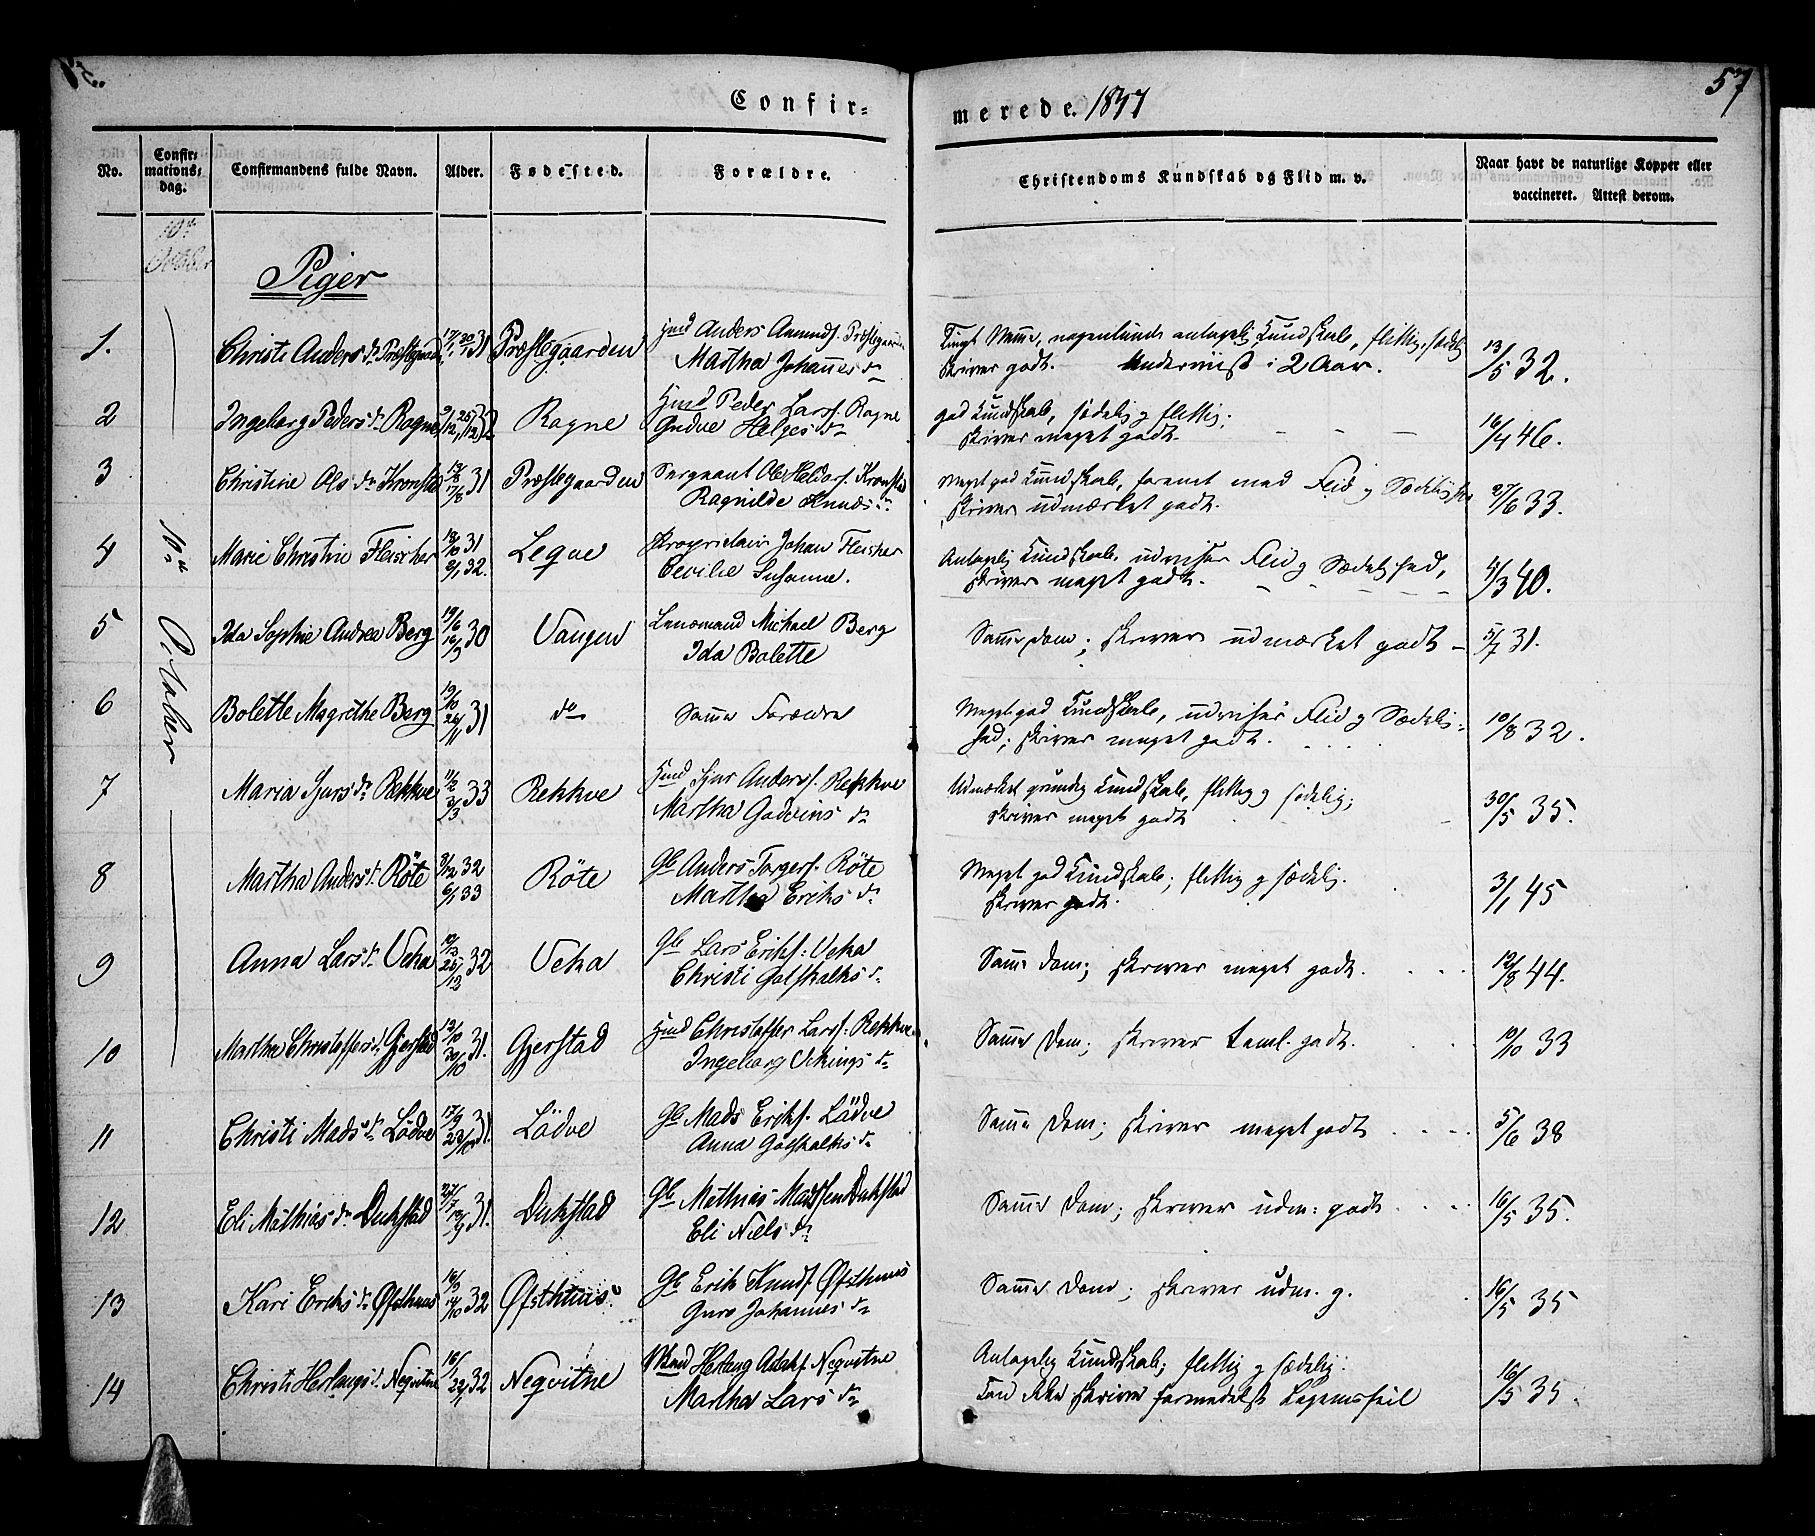 57
Confir-
merede. 1847
No.
Confir-
mations-
dag.
Confirmandens fulde Navn.
Alder.
Fødested.
Forældre.
Christendoms Kundskab og Flid m. v.
Naar havt de naturlige Kopper eller
vaccineret. Attest derom.
10de
October
Piger
10de October
1. Christi Anders dr Præstegaarden 31 Præstegaarden
Hmd Anders Amunds. Præstegaarden
Martha Johannes dr
nogenlunde antagelig Kundskab, flittig, sædelig
skriver godt. Underviist i 2 Aar.
13/5 32.
2 Ingeborg Peders dr Rogne 32 Rogne
Hmd Peder Larss. Rogne
Gudve Helges dr
god Kundskab, sædelig og flittig;
skriver meget godt.
16/4 46.
3 Christine Ols dr Kronstad 31 Præstegaarden
Sergeant Ole Heldors. Kronstad
Ragnilde Knuds dr
Meget god Kundskab, forenet med Flid og Sædelighed
skriver udmærket godt.
27/6 33.
4 Marie Christine Fleischer 18/10 31 8/1 32. Leqve
Proprietair Johan Fleisher
Cecilie Susanne.
Antagelig Kundskab, udviser Flid og Sædelighed,
skriver meget godt.
4/3 40.
5 Ida Sophie Andrea Berg 19/6 16/9 30 Vangen
Lensmand Michael Berg
Ida Bolette
Samme Dom; skriver udmærket godt
5/7 31.
6 Bolette Magrethe Berg 19/10 26/11 31 do
Samme Forældre
Meget god Kundskab, udviser Flid og Sædelig-
hed; skriver meget godt.
10/8 32.
7 Maria Sjurs dr Rekkve 11/2 3/3 33 Rekkve
Hmd Sjur Anders. Rekkve
Martha Godvins dr
Udmærket grundig Kundskab, flittig og sædelig;
skriver meget godt
30/5 35.
8 Martha Anders dr Röte 9/12 32 6/1 33 Röte
Gb Anders Torgers. Röte
Martha Eriks dr
Meget god Kundskab; flittig og sædelig.
skriver godt.
3/1 45
9 Anna Lars dr Veka 32 Veka
Gb Lars Eriks. Veka
Christi Gotskalks dr
Samme Dom; skriver meget godt.
12/8 44.
10 Martha Christoffers dr Gjerstad 12/10 30/10 31. Gjerstad
Hmd Christoffer Lars. Rekkve
Ingeborg Vikings dr
Samme Dom; skriver teml. godt.
12/10 33
11 Christi Mads dr Lödve 31. Lödve
Gb Mads Eriks. Lödve
Anna Gotskalks dr
Samme Dom; skriver meget godt
5/6 38
12 Eli Mathias dr Dukstad 31. Dukstad
Gb Mathias Madssen Dukstad
Eli Niels dr
Samme Dom; skriver udm: godt
16/5 35.
13 Kari Eriks dr Øfsthuus 16/9 14/10 32 Øfsthuus
Gb Erik Knuds. Øfsthuus
Guro Johannes dr
Samme Dom; skriver udm. g.
16/5 35
14 Christi Herlaugs dr Neqvitne 16/1 22/1 32 Neqvitne
Herlaug Neqvitne
Martha Lars dr
Antagelig Kundskab; flittig og sædelig.
kan ikke skrive formedelst Legemsfeil
16/5 35.